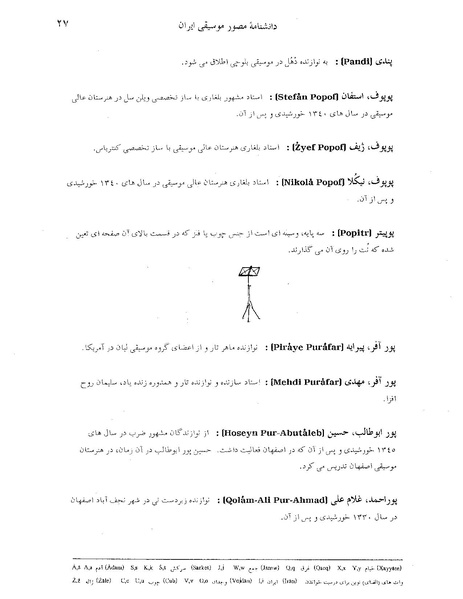 دانشنامهٔ مصور موسیقی ایران
۲۷
پندی (Pandi) : به نوازنده دُهُل در موسیقی بلوچی اطلاق می شود.
پوپوف، استفان (Stefân Popof) : استاد مشهور بلغاری با ساز تخصصی ویلن سل در هنرستان عالی
موسیقی در سال های ۱۳٤۰ خورشیدی و پس از آن.
پوپوف، ژیف (Žyef Popof) : استاد بلغاری هنرستان عالی موسیقی با ساز تخصصی کنترباس.
پوپوف، نیکُلا (Nikolâ Popof) : استاد بلغاری هنرستان عالی موسیقی در سال های ۱۳٤۰ خورشیدی
و پس از آن.
پوپیتر (Popitr) : سه پایه، وسیله ای است از جنس چوب یا فلز که در قسمت بالای آن صفحه ای تعبیه
شده که نُت را روی آن می گذارند.
پور آفر، پیرایه (Pirâye Purâfar) : نوازنده ماهر تار و از اعضای گروه موسیقی لیان در آمریکا.
پور آفر، مهدی (Mehdi Purâfar) : استاد سازنده و نوازنده تار و همدوره زنده یاد، سلیمان روح
افزا.
پور ابوطالب، حسین (Hoseyn Pur-Abutâleb) : از نوازندگان مشهور ضرب در سال های
۱۳٤٥ خورشیدی و پس از آن که در اصفهان فعالیت داشت. حسین پور ابوطالب در آن زمان، در هنرستان
موسیقی اصفهان تدریس می کرد.
پوراحمد، غلام علی (Qolâm-Ali Pur-Ahmad) : نوازنده زبردست نی در شهر نجف آباد اصفهان
در سال ۱۳۳۰ خورشیدی و پس از آن.
A,a A,a آدم (Âdam) S,s K,k Š,š سرکش (Sarkeš) J,j W,w جمع (Jamw) Q,q فرق (Qarq) X,x Y,y خیام (Xayyâm)
Z,z ژاله (Žâle) C,c U,u چوب (Cub) V,v O,o وجدان (Vojdân) I,i ایران (Irân) وات های (الفبای) نوین برای درست خواندن